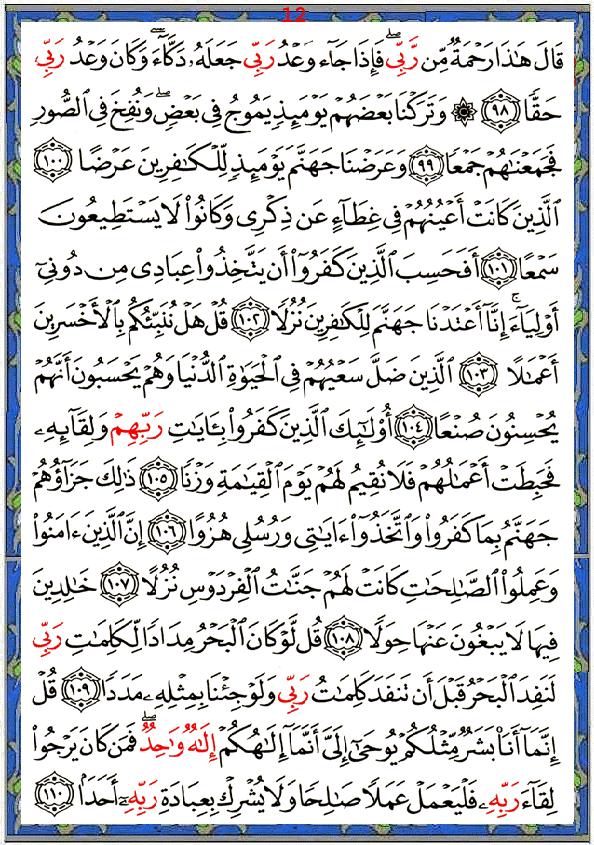 12
قَالَ هَٰذَا رَحْمَةٌ مِّن رَّبِّي ۖ فَإِذَا جَآءَ وَعْدُ رَبِّي جَعَلَهُۥ دَكَّآءَ ۖ وَكَانَ وَعْدُ رَبِّي
حَقًّا ﴿٩٨﴾ ۞ وَتَرَكْنَا بَعْضَهُمْ يَوْمَئِذٍ يَمُوجُ فِي بَعْضٍ ۖ وَنُفِخَ فِي ٱلصُّورِ
فَجَمَعْنَٰهُمْ جَمْعًا ﴿٩٩﴾ وَعَرَضْنَا جَهَنَّمَ يَوْمَئِذٍ لِّلْكَٰفِرِينَ عَرْضًا ﴿١٠٠﴾
ٱلَّذِينَ كَانَتْ أَعْيُنُهُمْ فِي غِطَآءٍ عَن ذِكْرِي وَكَانُوا۟ لَا يَسْتَطِيعُونَ
سَمْعًا ﴿١٠١﴾ أَفَحَسِبَ ٱلَّذِينَ كَفَرُوٓا۟ أَن يَتَّخِذُوا۟ عِبَادِي مِن دُونِيٓ
أَوْلِيَآءَ ۚ إِنَّآ أَعْتَدْنَا جَهَنَّمَ لِلْكَٰفِرِينَ نُزُلًا ﴿١٠٢﴾ قُلْ هَلْ نُنَبِّئُكُم بِٱلْأَخْسَرِينَ
أَعْمَٰلًا ﴿١٠٣﴾ ٱلَّذِينَ ضَلَّ سَعْيُهُمْ فِي ٱلْحَيَوٰةِ ٱلدُّنْيَا وَهُمْ يَحْسَبُونَ أَنَّهُمْ
يُحْسِنُونَ صُنْعًا ﴿١٠٤﴾ أُو۟لَٰٓئِكَ ٱلَّذِينَ كَفَرُوا۟ بِـَٔايَٰتِ رَبِّهِمْ وَلِقَآئِهِۦ
فَحَبِطَتْ أَعْمَٰلُهُمْ فَلَا نُقِيمُ لَهُمْ يَوْمَ ٱلْقِيَٰمَةِ وَزْنًا ﴿١٠٥﴾ ذَٰلِكَ جَزَآؤُهُمْ
جَهَنَّمُ بِمَا كَفَرُوا۟ وَٱتَّخَذُوٓا۟ ءَايَٰتِي وَرُسُلِي هُزُوًا ﴿١٠٦﴾ إِنَّ ٱلَّذِينَ ءَامَنُوا۟
وَعَمِلُوا۟ ٱلصَّٰلِحَٰتِ كَانَتْ لَهُمْ جَنَّٰتُ ٱلْفِرْدَوْسِ نُزُلًا ﴿١٠٧﴾ خَٰلِدِينَ
فِيهَا لَا يَبْغُونَ عَنْهَا حِوَلًا ﴿١٠٨﴾ قُل لَّوْ كَانَ ٱلْبَحْرُ مِدَادًا لِّكَلِمَٰتِ رَبِّي
لَنَفِدَ ٱلْبَحْرُ قَبْلَ أَن تَنفَدَ كَلِمَٰتُ رَبِّي وَلَوْ جِئْنَا بِمِثْلِهِۦ مَدَدًا ﴿١٠٩﴾ قُلْ
إِنَّمَآ أَنَا۠ بَشَرٌ مِّثْلُكُمْ يُوحَىٰٓ إِلَيَّ أَنَّمَآ إِلَٰهُكُمْ إِلَٰهٌ وَٰحِدٌ ۖ فَمَن كَانَ يَرْجُوا۟
لِقَآءَ رَبِّهِۦ فَلْيَعْمَلْ عَمَلًا صَٰلِحًا وَلَا يُشْرِكْ بِعِبَادَةِ رَبِّهِۦٓ أَحَدًۢا ﴿١١٠﴾